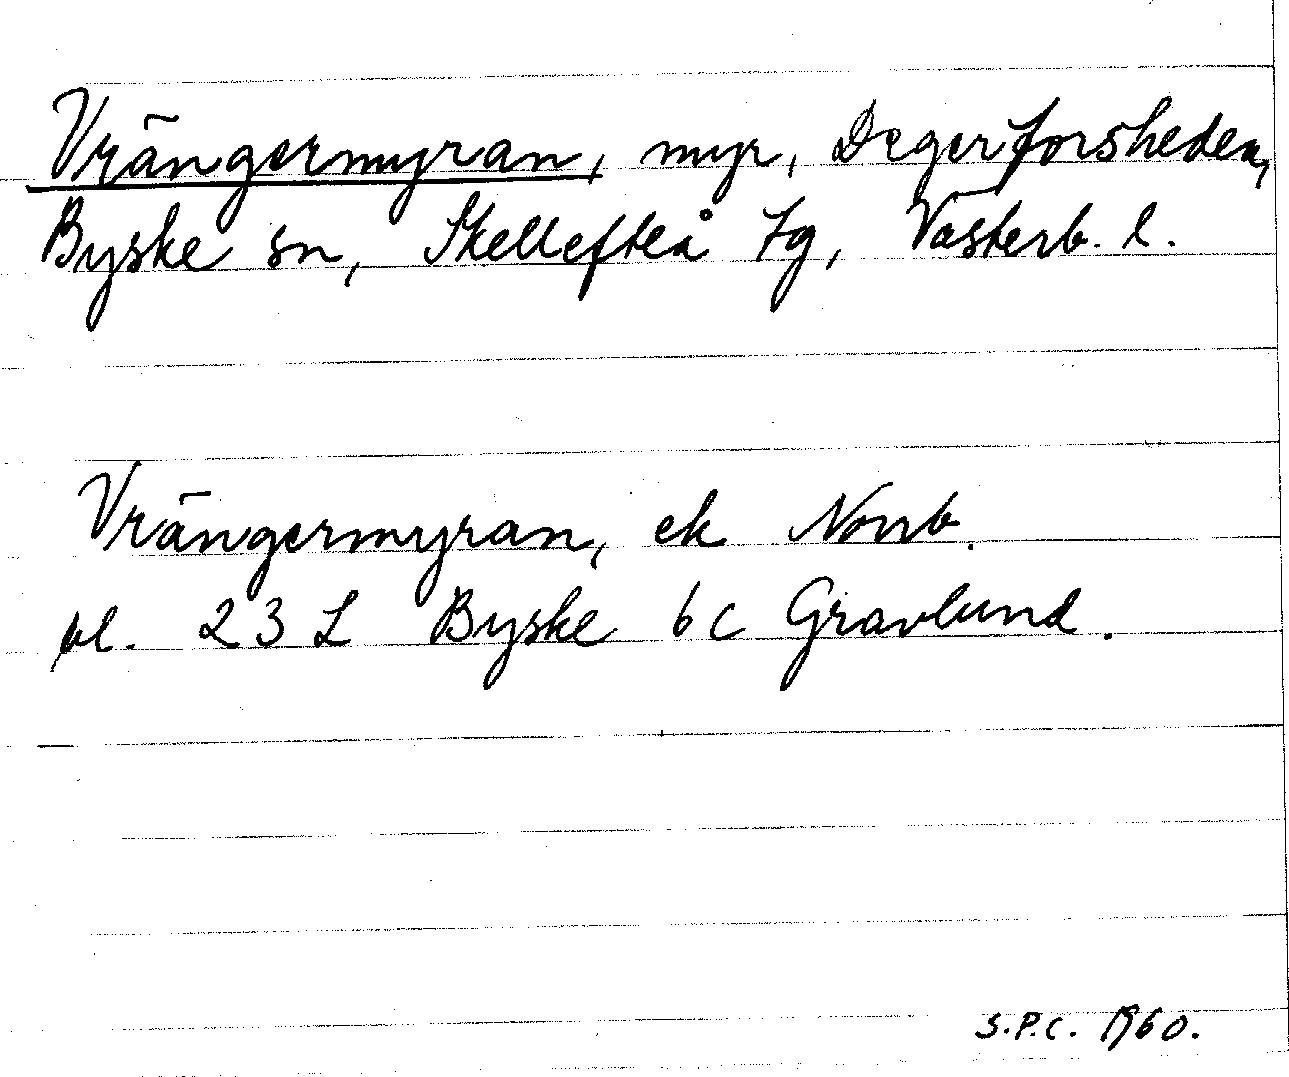 Vrängermyran, myr, Degerforsheden,
Byske sn, Skellefteå tg, Västerb. l.
Vrängermyran, ek Norrb.
bl. 23 L Byske 6 c Gravlund.
S.P.C. 1960.